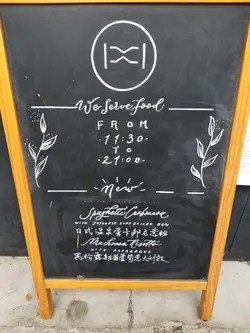 We Serve Food
FROM
11:30
TO
21:00
New
Spaghetti Carbonara
WITH JAPANESE SOFT BOILED EGG
日式溫泉蛋卡邦尼意粉
Mushroom Risotto
WITH ASPARAGUS
黑松露雜菌蘆筍意大利飯